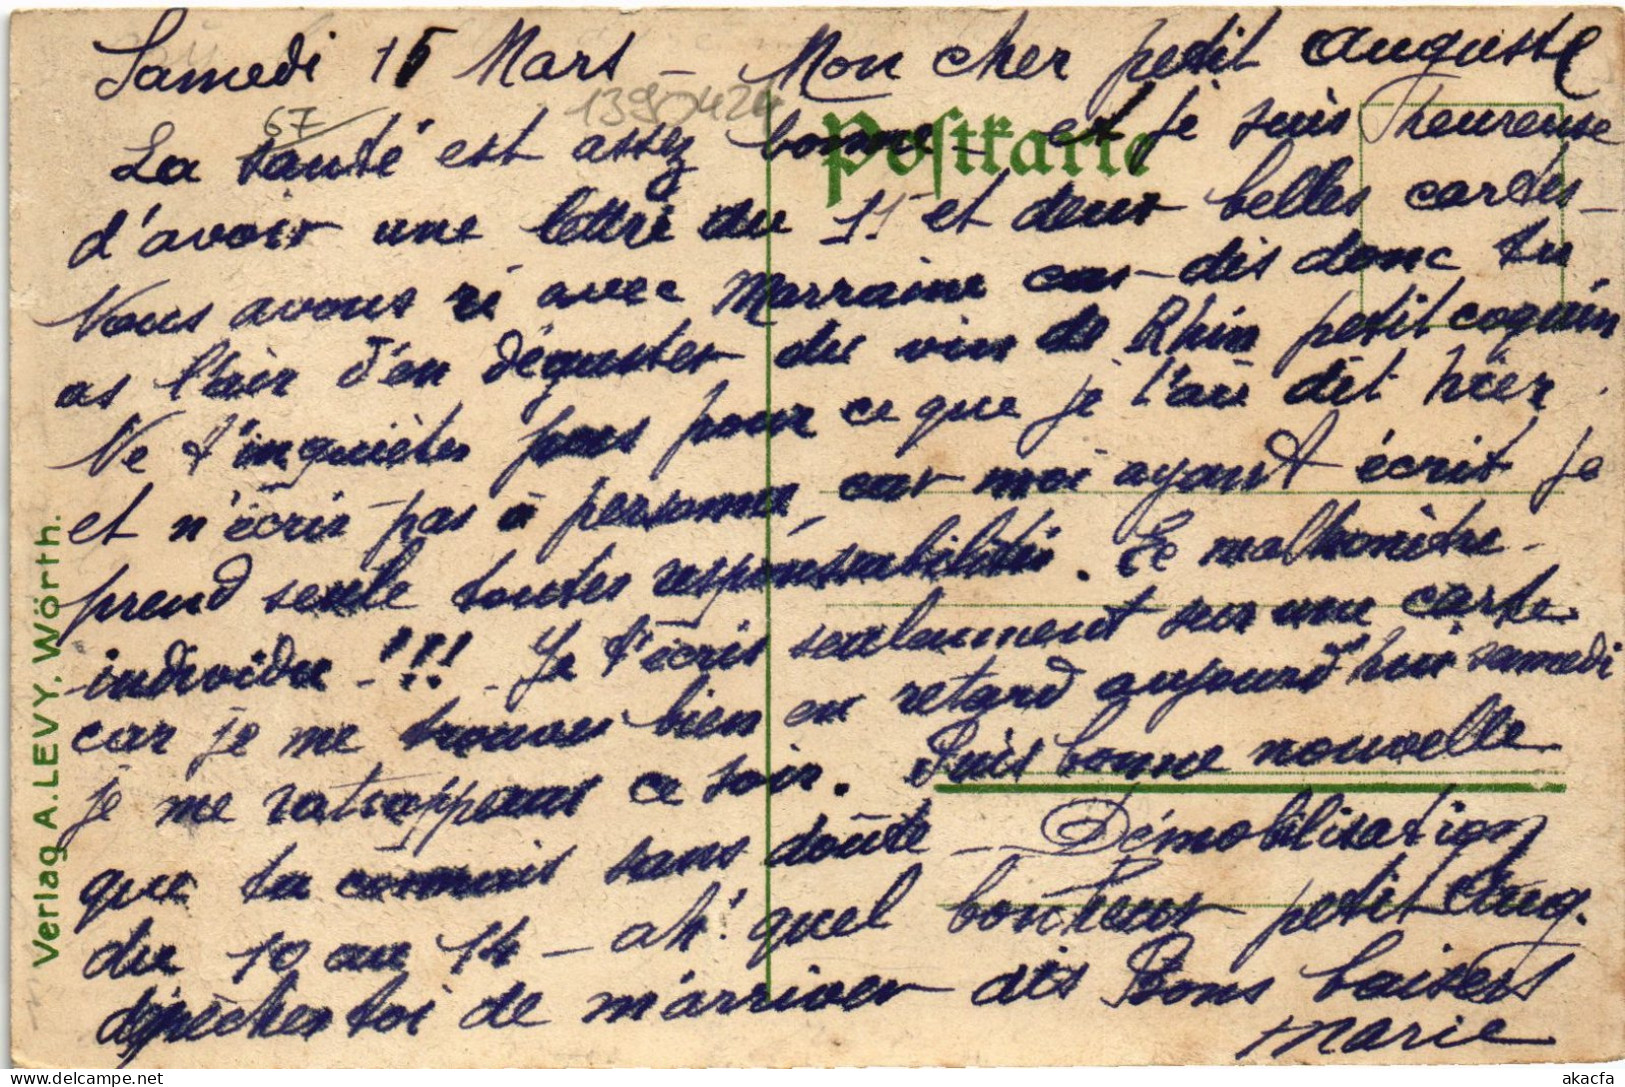 Samedi 15 Mars - Mon cher petit Auguste
67
13950424
Postkarte
La santé est assez bonne - et je suis heureuse
d'avoir une lettre du 11 et deux belles cartes -
Nous avons ri avec Marraine car - dis donc tu
as l'air d'en déguster du vin de Rhin petit coquin
Ne t'inquiètes pas pour ce que je t'ai dit hier.
et n'écris pas à personne, car moi ayant écrit je
prend seule toutes responsabilités. Le malhonnête -
individu !!! - Je t'écris seulement sur une carte
car je me trouves bien en retard aujourd'hui samedi
je me ratrapperais ce soir. Puis bonne nouvelle
que tu connais sans doûte - Démobilisation
du 10 au 14 - ah! quel bonheur petit Aug.
dépèches toi de m'arriver dis Bons baisers
Marie
Verlag A. LEVY, Wörth.
akacfa